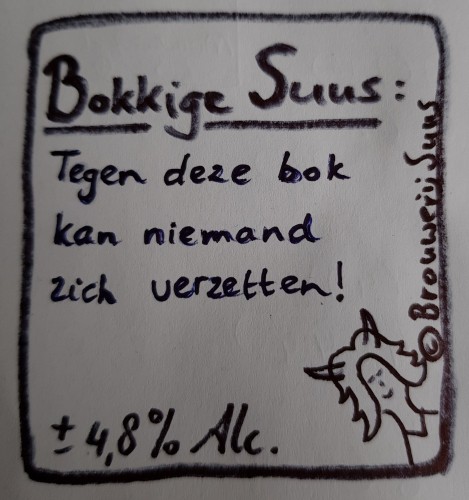 Bokkige Suus:
Tegen deze bok
kan niemand
zich verzetten!
± 4,8% Alc.
© Brouwerij Suus